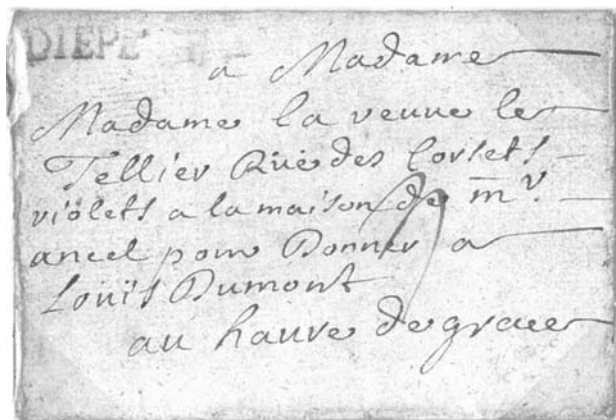 DIEPE
a Madame
Madame la veuve le
Tellier Rüe des Corsets
violets a la maison de mr.
ancel pour Donner a
Louis Dumont
au havre de grace